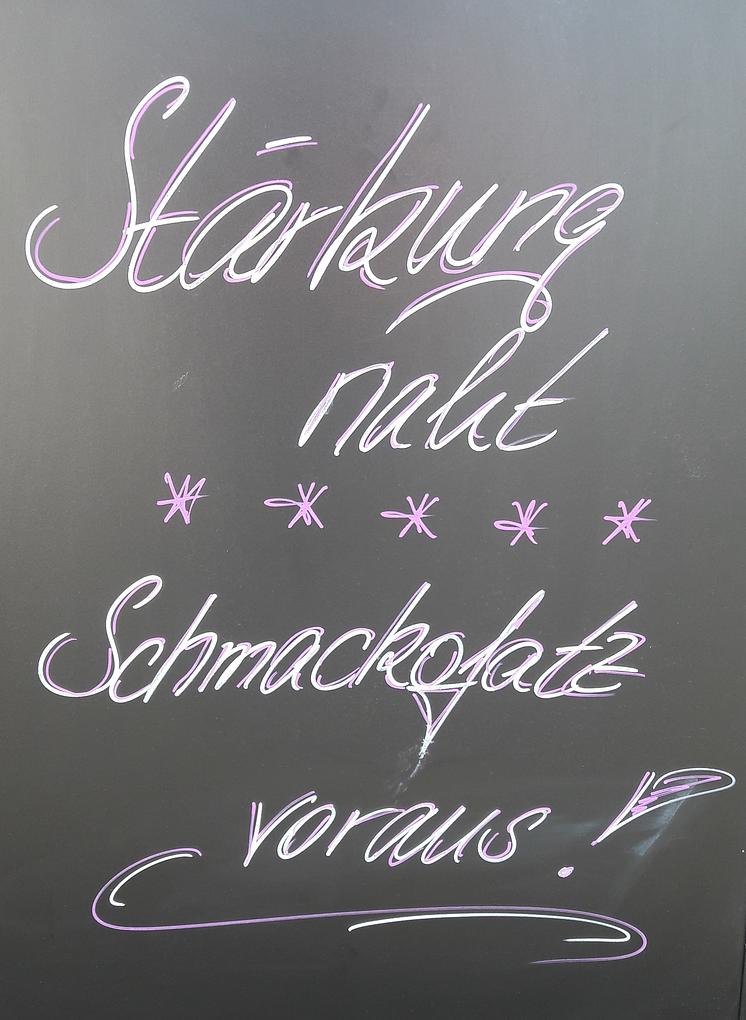 Stärkung
naht
* * * * *
Schmackofatz
voraus!